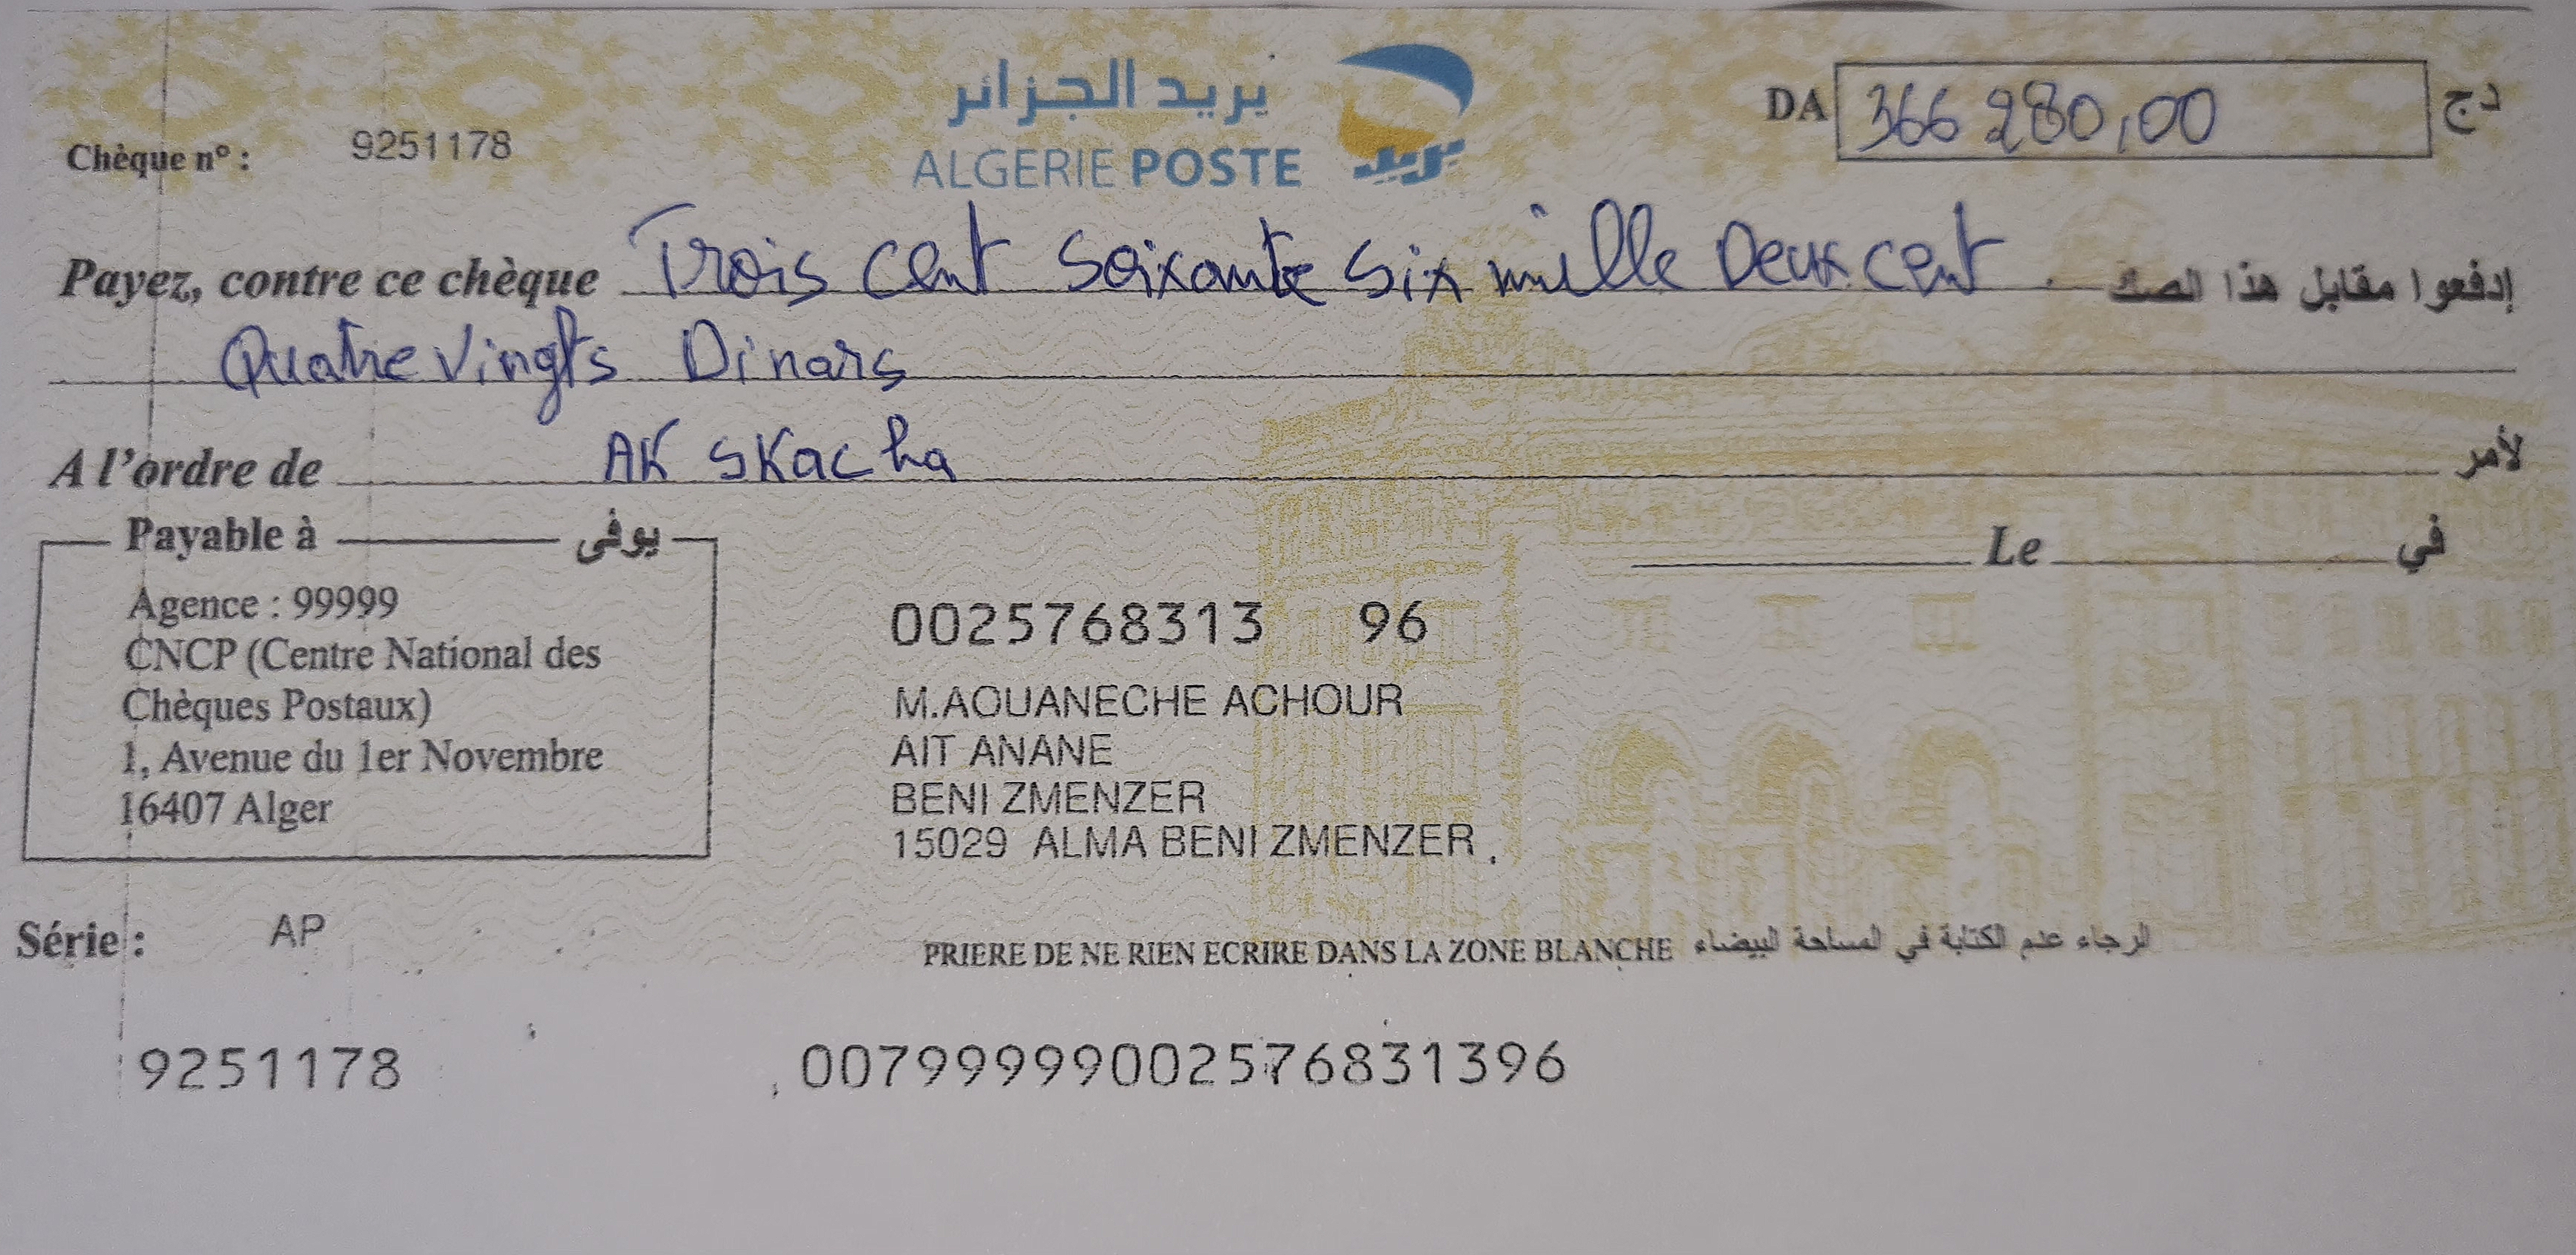 بريد الجزائر
ALGERIE POSTE
بريد
DA 366 280,00 دج
Chèque n° : 9251178
Payez, contre ce chèque Trois cent soixante six mille Deux cent إدفعوا مقابل هذا الصك
Quatre vingts Dinars
A l'ordre de AK SKacha لأمر
Payable à يوفى
Le في
Agence : 99999
CNCP (Centre National des
Chèques Postaux)
1, Avenue du 1er Novembre
16407 Alger
0025768313 96
M.AOUANECHE ACHOUR
AIT ANANE
BENI ZMENZER
15029 ALMA BENI ZMENZER
Série : AP
PRIERE DE NE RIEN ECRIRE DANS LA ZONE BLANCHE الرجاء عدم الكتابة في المساحة البيضاء
9251178 00799999002576831396